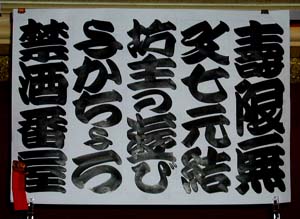 寿限無
文七元結
坊主の遊び
らくだちょう
禁酒番屋